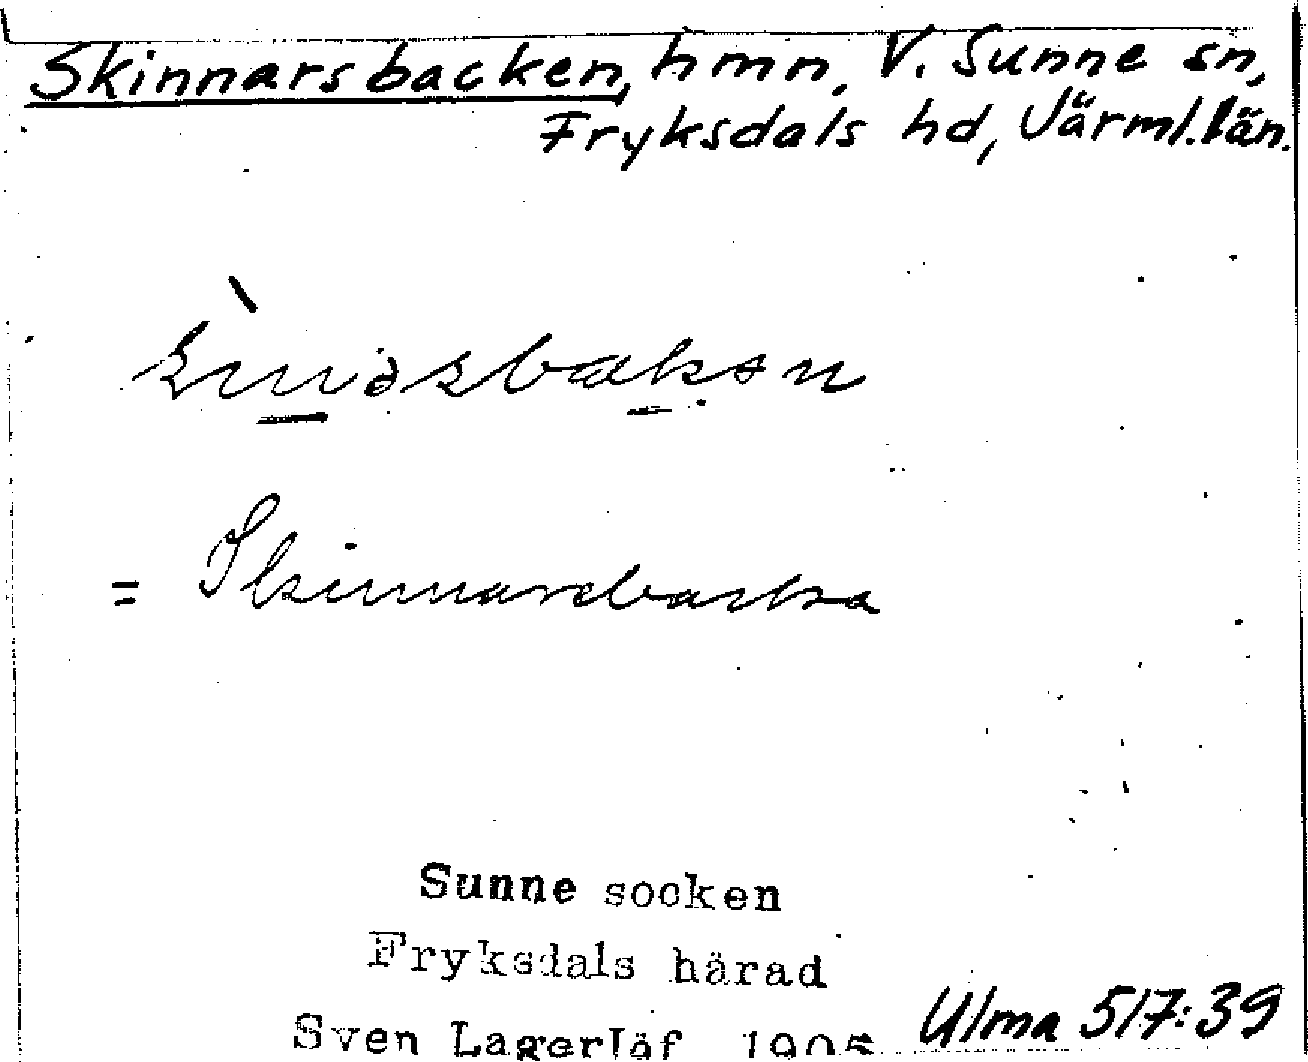 Skinnarsbacken, hmn, V. Sunne sn,
Fryksdals hd, Värml. län.
= Skinnarsbacka
Sunne socken
Fryksdals härad
Sven Lagerlöf 1905
Ulma 517:39